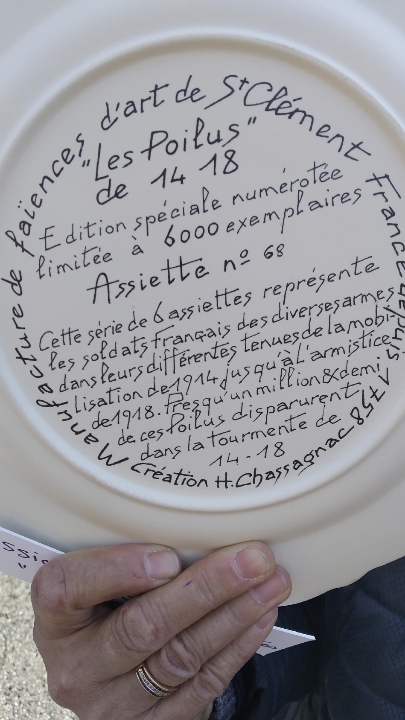 Manufacture de faïences d'art de St Clément France depuis 1758
"Les Poilus"
de 14 18
Edition spéciale numérotée
limitée à 6000 exemplaires
Assiette nº 68
Cette série de 6 assiettes représente
les soldats français des diverses armes
dans leurs différentes tenues de la mobi-
lisation de 1914 jusqu'à l'armistice
de 1918. Presqu'un million & demi
de ces Poilus disparurent
dans la tourmente de
14-18
Création H. Chassagnac 84